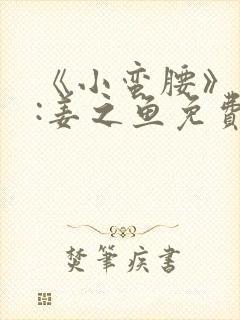 《小蛮腰》
:姜之鱼免费
焚筆疾書